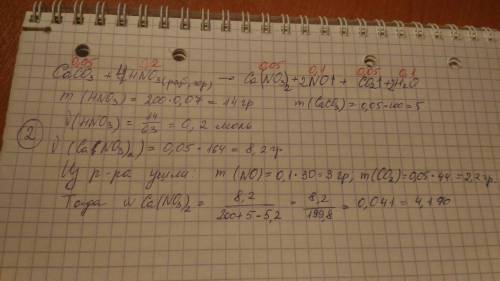 0,05 0,2 0,05 0,1 0,05 0,1
CaCO₃ + 4HNO₃(разб, гор) → Ca(NO₃)₂ + 2NO↑ + CO₂↑ + 2H₂O
m(HNO₃) = 200·0,07 = 14 гр m(CaCO₃) = 0,05·100 = 5
ν(HNO₃) = 14/63 = 0,2 моль
② ν(Ca(NO₃)₂) = 0,05·164 = 8,2 гр.
Из р-ра ушли m(NO) = 0,1·30 = 3 гр, m(CO₂) = 0,05·44 = 2,2 гр.
Тогда ω Ca(NO₃)₂ = 8,2/200+5-5,2 = 8,2/199,8 = 0,041 = 4,1%